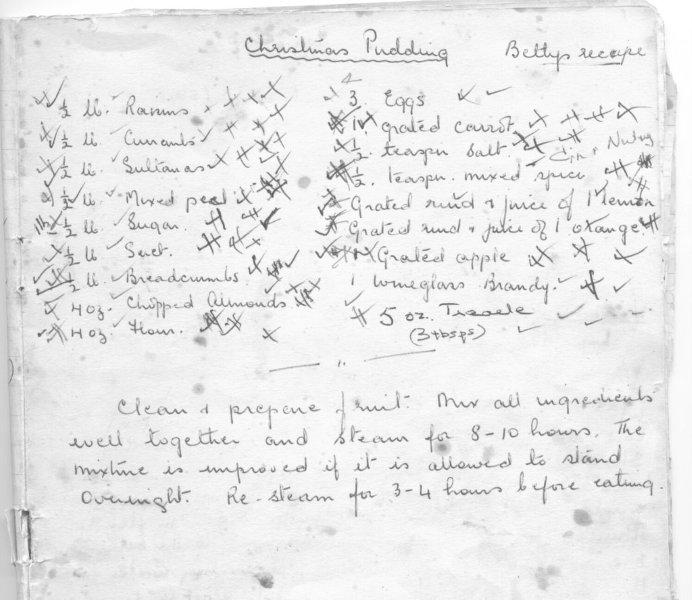 Christmas Pudding Betty's recipe
½ lb. Raisins
½ lb. Currants
½ lb. Sultanas
½ lb. Mixed peel
½ lb Sugar.
½ lb Suet.
½ lb. Breadcrumbs
4 oz. Chopped Almonds
4 oz. Flour.
4
3. Eggs
1. grated carrot
½. teaspn salt
Cin + Nutmeg
½. teaspn. mixed spice
Grated rind + juice of 1 lemon
Grated rind + juice of 1 orange.
1 Grated apple
1 wineglass Brandy.
5 oz. Treacle
(3 tbsps)
Clean + prepare fruit. Mix all ingredients
well together and steam for 8-10 hours. The
mixture is improved if it is allowed to stand
overnight. Re-steam for 3-4 hours before eating.